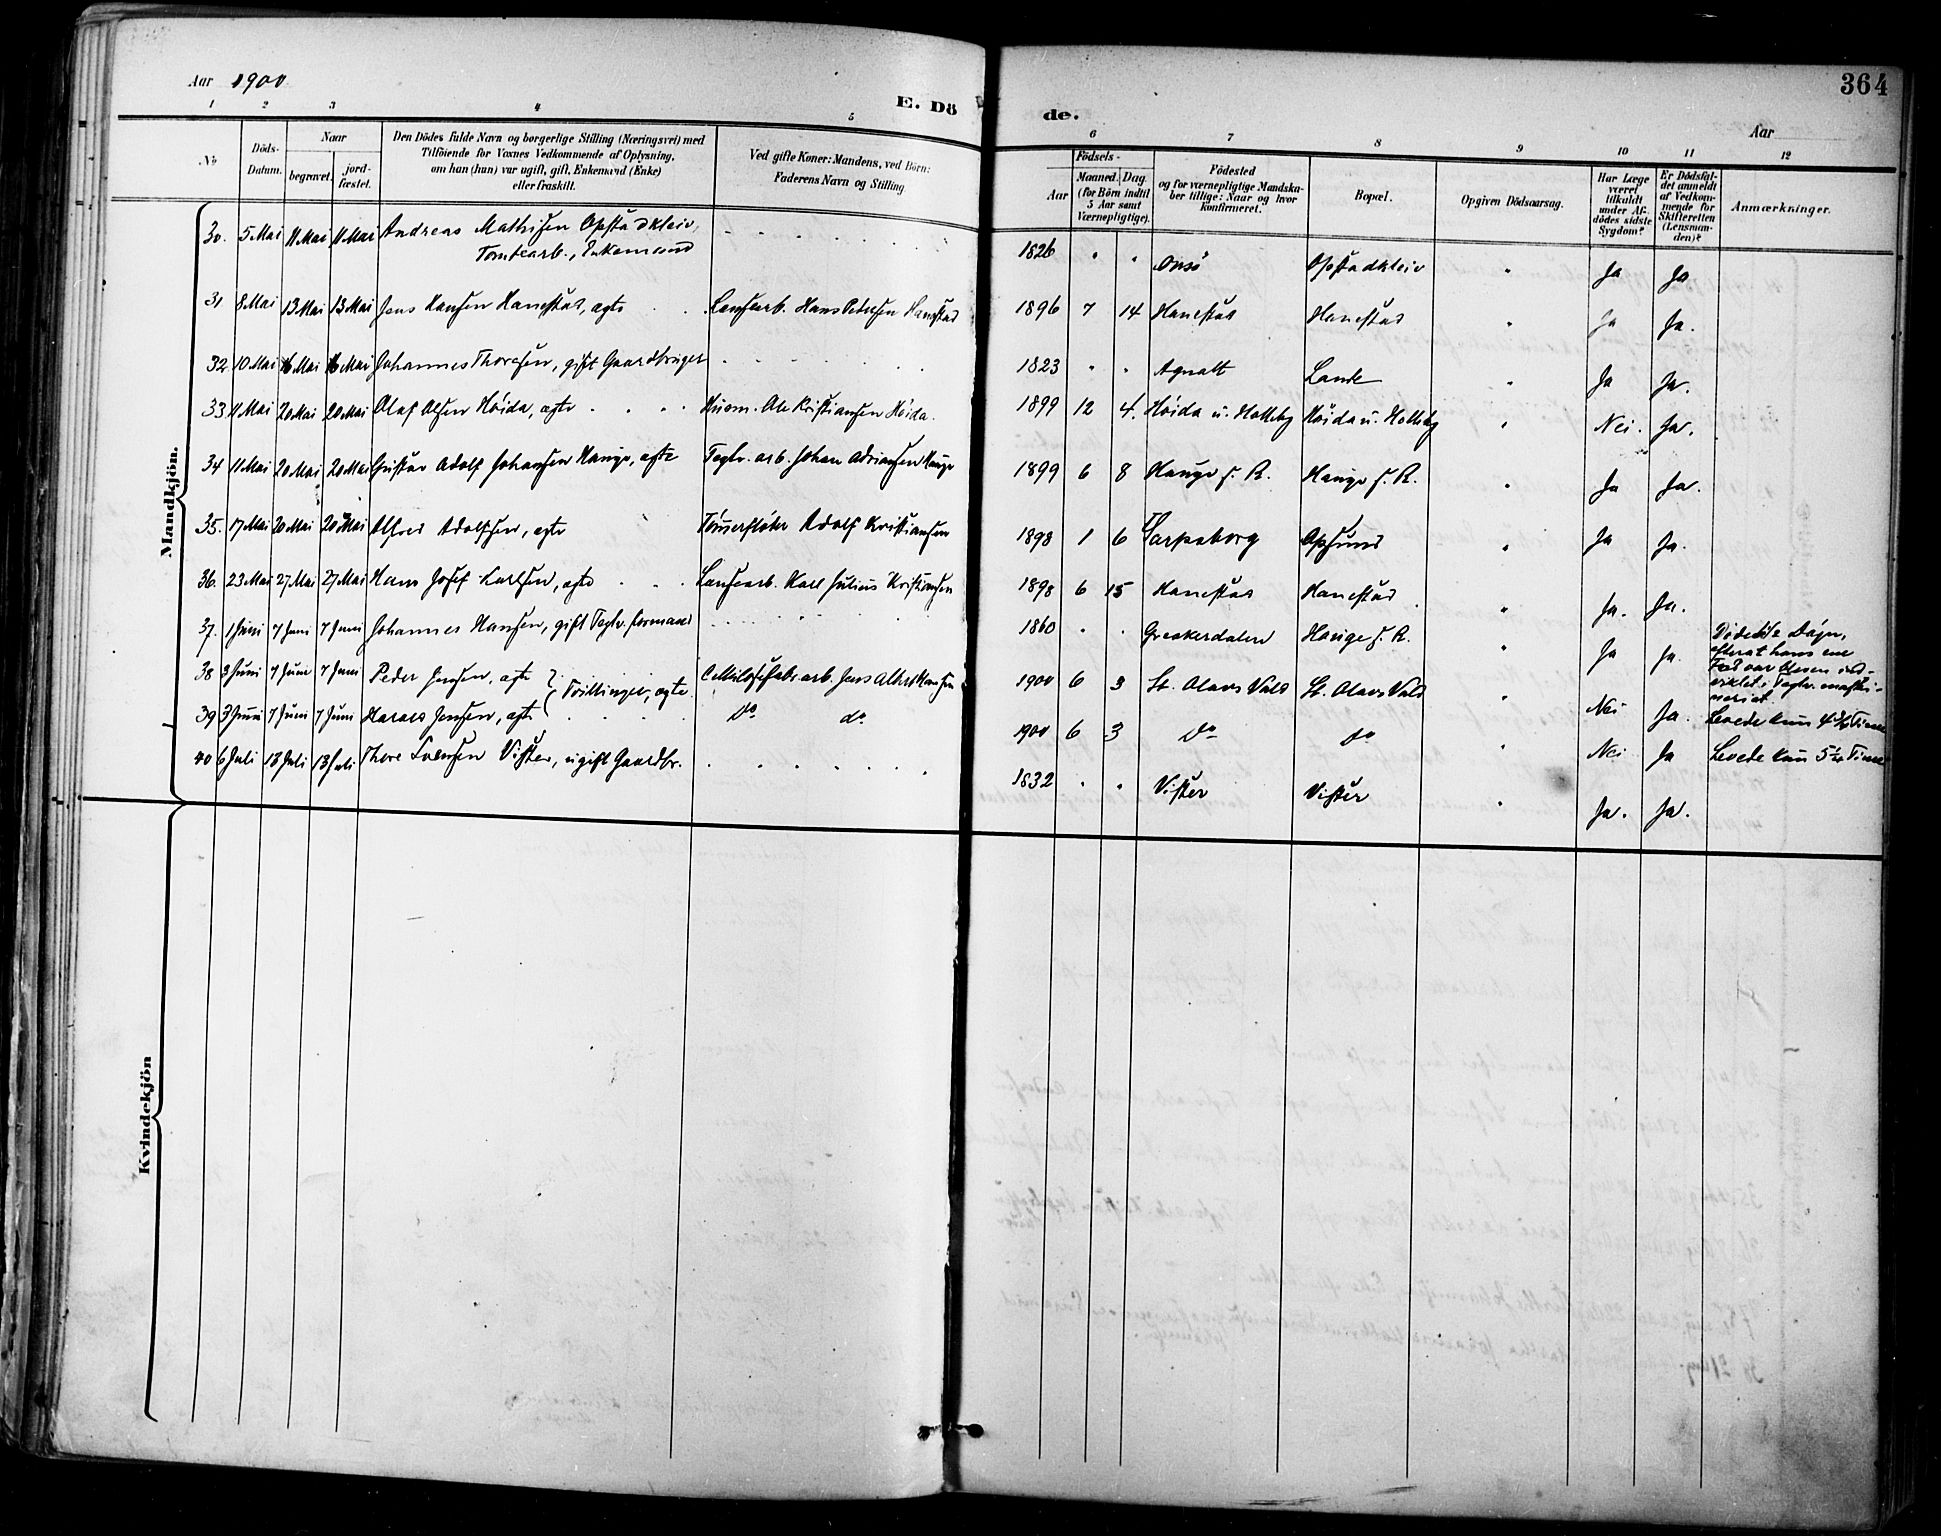 Aar 1900
E. Döde.
364
Aar
1 2 3 4 5 6 7 8 9 10 11 12
No
Döds-Datum.
Naar
begravet.
jordfæstet.
Den Dödes fulde Navn og borgerlige Stilling (Næringsvei) med
Tilföiende for Voxnes Vedkommende af Oplysning,
om han (hun) var ugift, gift, Enkemand (Enke)
eller fraskilt.
Ved gifte Koner: Mandens, ved Börn:
Faderens Navn og Stilling
Födsels-
Aar
Maaned. Dag.
(for Börn indtil
5 Aar samt
Værnepligtige).
Födested
og for værnepligtige Mandska-
ber tillige: Naar og hvor
konfirmeret.
Bopæl.
Opgiven Dödsaarsag.
Har Læge
været
tilkaldt
under Af-
dödes sidste
Sygdom?
Er Dödsfal-
det anmeldt
af Vedkom-
mende for
Skifteretten
(Lensman-
den)?
Anmærkninger.
Mandkjön.
30. 5 Mai 11 Mai 11 Mai Andreas Mathisen Opstadkleiv, 1826 " " Onsö Opstadkleiv " Ja Ja
Tomtearb., Enkemand
31 8 Mai 13 Mai 13 Mai Jens Hansen Hanestad, ægte Hans Petersen Hanestad 1896 7 14 Hanestad Hanestad " Ja Ja.
32 10 Mai 16 Mai 16 Mai Johannes Thoresen, gift Gaardbruger 1823 " " Agnalt Lande " Ja Ja.
33 11 Mai 20 Mai 20 Mai Olaf Olsen Höida, ægte Husm. Ole Kristiansen Höida. 1899 12 4. Höida u. Holleby Höida u. Holleby " Nei. Ja.
34 11 Mai 20 Mai 20 Mai Gustav Adolf Johansen Hauge, ægte Teglv. arb. Johan Adriansen Hauge 1899 6 8 Hauge s. R. Hauge s. R. " Ja Ja.
35. 17 Mai 20 Mai 20 Mai Alfred Adolfsen, ægte Tömmerfløter Adolf Kristiansen 1898 1 6 Sarpsborg Opsund " Ja Ja.
36. 23 Mai 27 Mai 27 Mai Hans Josef Karlsen, ægte Karl Julius Kristiansen 1898 6 15 Hanestad Hanestad " Ja. Ja.
37. 1 Juni 7 Juni 7 Juni Johannes Hansen, gift Teglv. formand 1860 " " Greakerdalen Hauge s. R. " Ja Ja.
Döde
efterat hans ene
Fod var bleven ind-
viklet i Teglv. maski-
neriet.
38 3 Juni 7 Juni 7 Juni Peder Jensen, ægte Cellulosefabr. arb. Jens Albert Hansen 1900 6 3 St. Olavs Vold St. Olavs Vold " Nei Ja. Levede kun 4 Time
Tvillinger, ægte
39 3 Juni 7 Juni 7 Juni Harald Jensen, ægte do do 1900 6 3 do do " Nei Ja Levede kun 5 Time
40 6 Juli 13 Juli 13 Juli Thore Svensen Vister, ugift Gaardbr. 1832 " " Vister Vister " Ja. Ja.
Kvindekjön